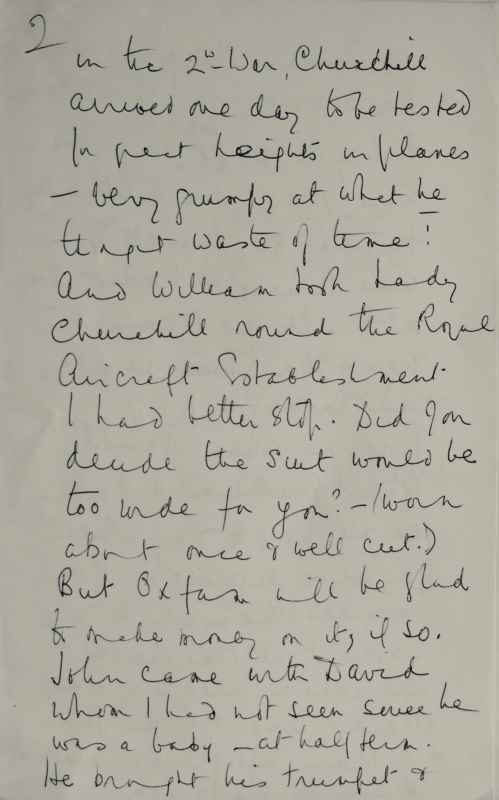 2
in the 2nd War, Churchill
arrived one day to be tested
for great heights in planes
— very grumpy at what he
thought waste of time!
And William took Lady
Churchill round the Royal
Aircraft Establishment.
I had better stop. Did you
decide the suit would be
too wide for you? — (worn
about once & well cut.)
But Oxfam will be glad
to make money on it, if so.
John came with David
whom I had not seen since he
was a baby — at half term.
He brought his trumpet &